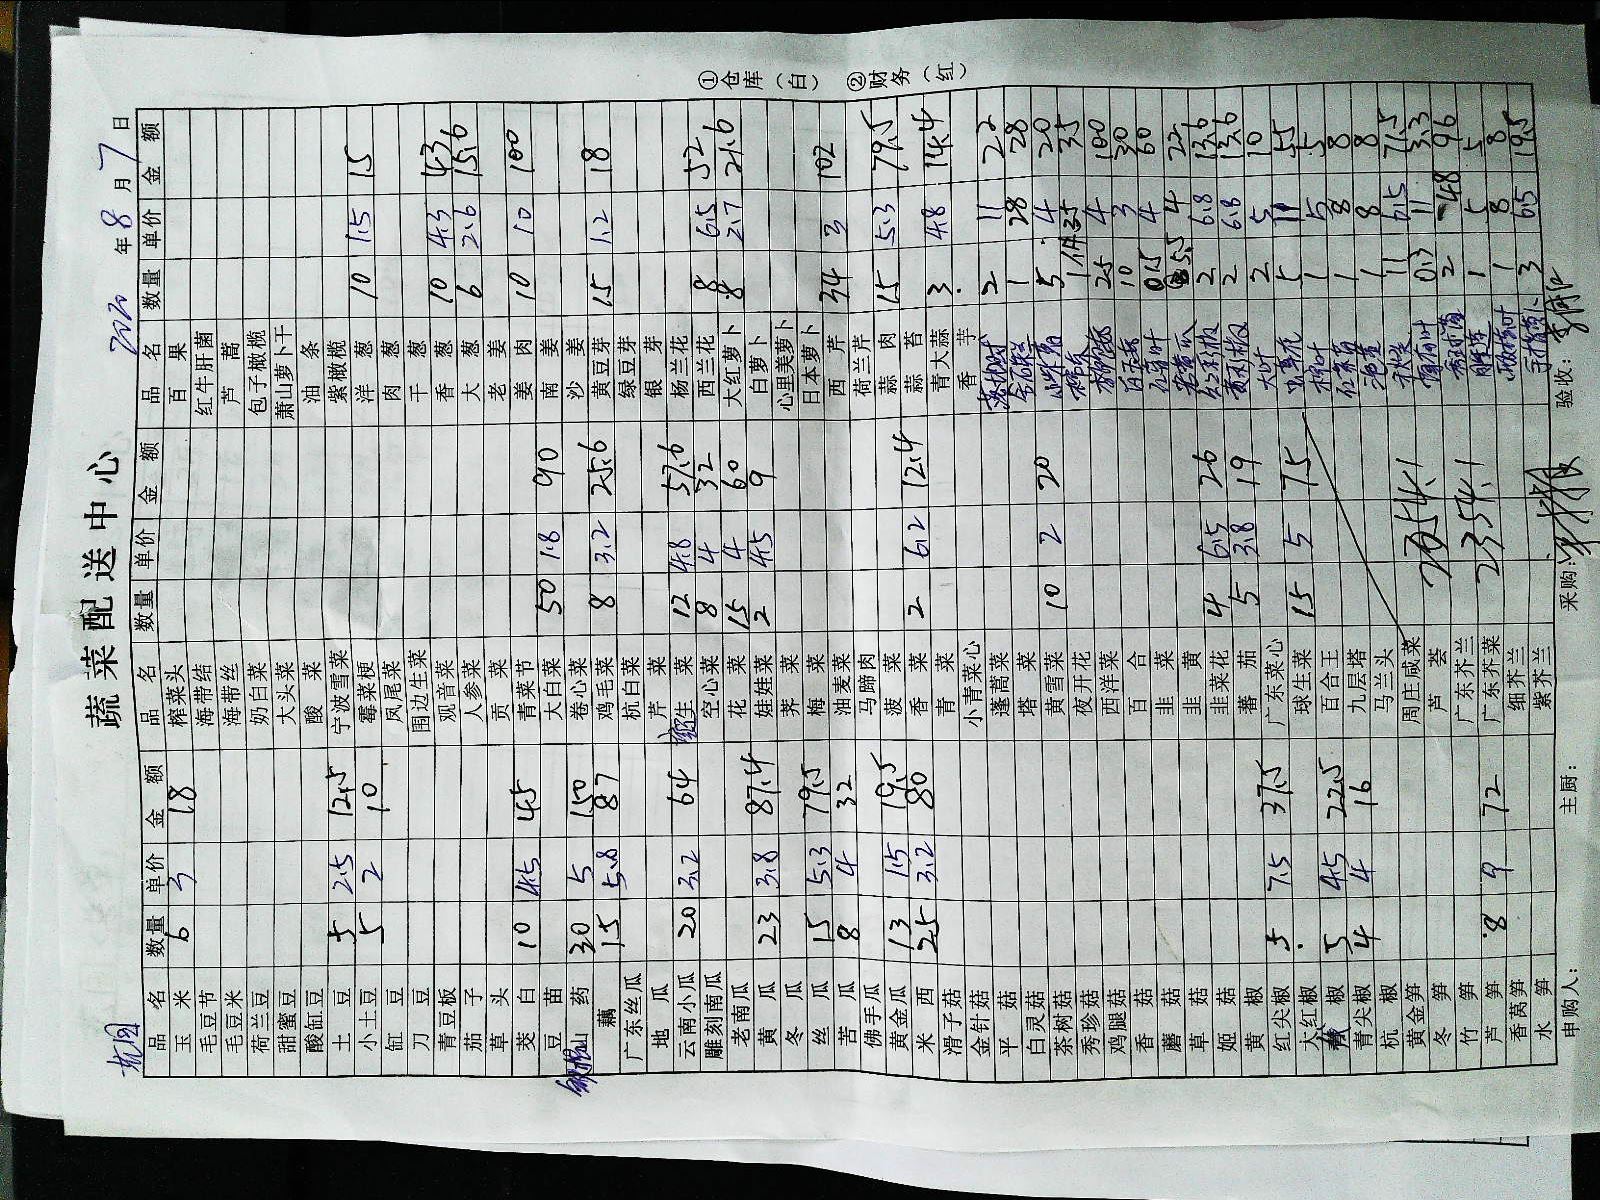 蔬菜配送中心
杭国 2020年8月7日
品名 数量 单价 金额 品名 数量 单价 金额 品名 数量 单价 金额
玉米 6 3 18 榨菜头 百果
毛豆节 海带结 红牛肝菌
毛豆米 海带丝 芦蒿
荷兰豆 奶白菜 包子橄榄
甜蜜豆 大头菜 萧山萝卜干
酸缸豆 酸菜 油条
土豆 5 2.5 12.5 宁波雪菜 紫橄榄
小土豆 5 2 10 霉菜梗 洋葱 10 1.5 15
缸豆 凤尾菜 肉葱
刀豆 围边生菜 干葱
青豆板 观音菜 香葱 10 4.3 43
茄子 人参菜 大葱 6 2.6 15.6
草头 贡菜 老姜
茭白 10 4.5 45 青菜节 姜肉 10 10 100
豆苗 大白菜 50 1.8 90 南姜
山药 30 5 150 卷心菜 沙姜
藕 15 5.8 87 鸡毛菜 8 3.2 25.6 黄豆芽 15 1.2 18
广东丝瓜 杭白菜 绿豆芽
地瓜 芹菜 银芽
云南小瓜 20 3.2 64 生菜 12 4.8 57.6 杨兰花
雕刻南瓜 空心菜 8 4 32 西兰花 8 6.5 52
老南瓜 花菜 15 4 60 大红萝卜 8 2.7 21.6
黄瓜 23 3.8 87.4 娃娃菜 2 4.5 9 白萝卜
冬瓜 荠菜 心里美萝卜
丝瓜 15 5.3 79.5 梅菜 日本萝卜
苦瓜 8 4 32 油麦菜 西芹 34 3 102
佛手瓜 马蹄肉 荷兰芹
黄金瓜 13 1.5 19.5 菠菜 蒜肉 15 5.3 79.5
米西 25 3.2 80 香菜 2 6.2 12.4 蒜苔
滑子菇 青菜 青大蒜 3 4.8 14.4
金针菇 小青菜心 香芋
平菇 蓬蒿菜 2 11 22
白灵菇 塔菜 1 28 28
茶树菇 黄雪菜 10 2 20 5 4 20
秀珍菇 夜开花 1件 35 35
鸡腿菇 西洋菜 25 4 100
香菇 百合 10 3 30
蘑菇 韭菜 15 4 60
草菇 韭黄 5.5 4 22
姬菇 韭菜花 4 6.5 26 2 6.8 13.6
黄椒 蕃茄 5 3.8 19 2 6.8 13.6
红尖椒 5 7.5 37.5 广东菜心 大叶 2 5 10
大红椒 球生菜 15 5 75 5 11 55
椒 5 4.5 22.5 百合王 1 5 5
青尖椒 4 4 16 九层塔 1 8 8
杭椒 马兰头 1 8 8
黄金笋 周庄咸菜 秋葵 11 6.5 71.5
冬笋 芦荟 0.3 11 3.3
竹笋 广东芥兰 2 48 96
芦笋 8 9 72 广东芥菜 2354.1 1 5 5
香莴笋 细芥兰 1 8 8
水笋 紫芥兰 3 6.5 19.5
申购人： 主厨： 采购： 验收：
①仓库（白） ②财务（红）